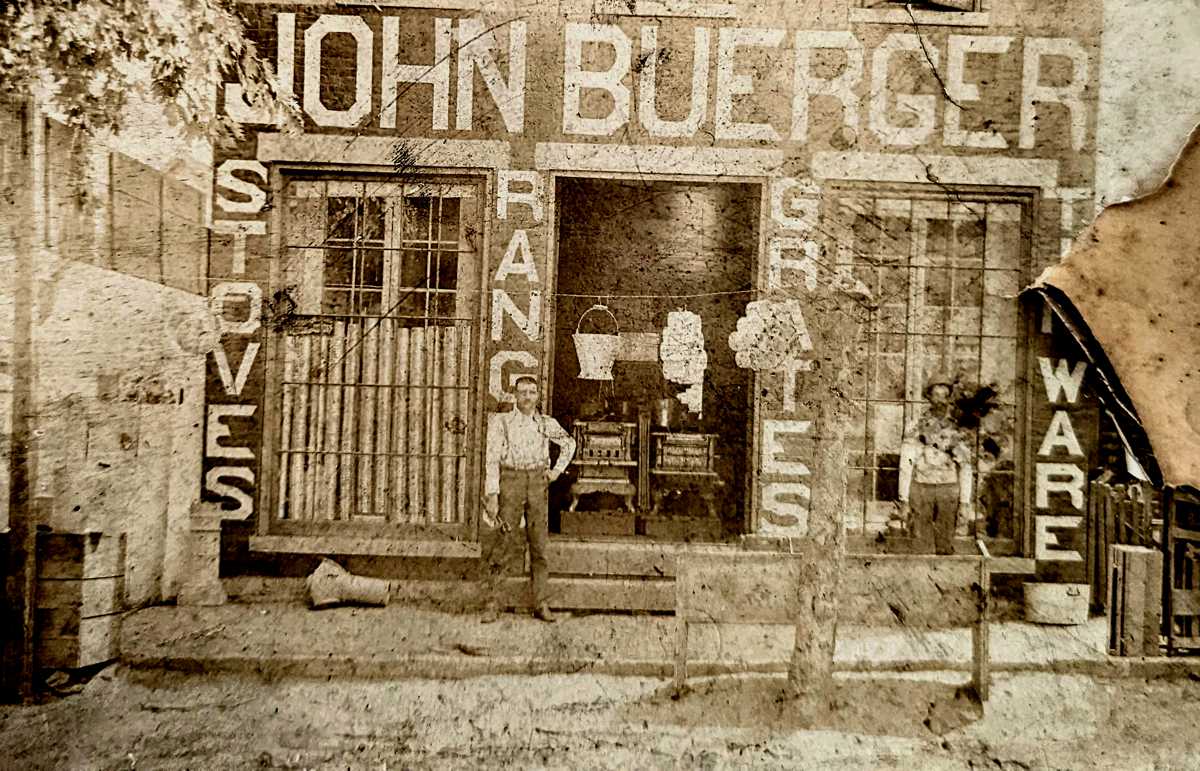 JOHN BUERGER
STOVES
RANG
GRATES
WARE